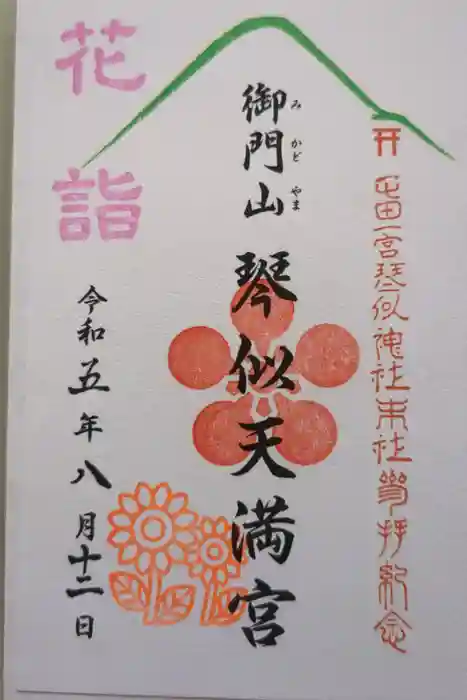 屯田一宮琴似神社末社參拝紀念
御門山 琴似天満宮
みかどやま
花詣
令和五年八月十二日